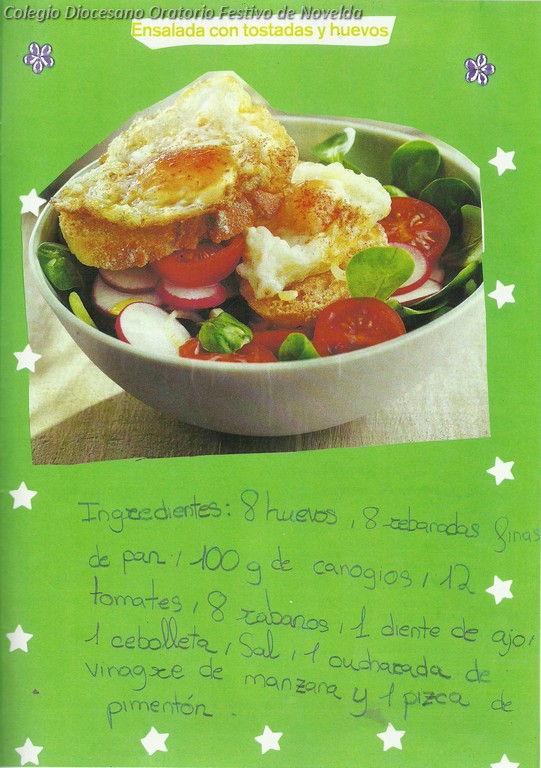 Colegio Diocesano Oratorio Festivo de Novelda
Ensalada con tostadas y huevos
Ingredientes: 8 huevos, 8 rebanadas finas
de pan, 100 g de canogios, 12
tomates, 8 rabanos, 1 diente de ajo,
1 cebolleta, Sal, 1 cucharada de
vinagre de manzana y 1 pizca de
pimentón.